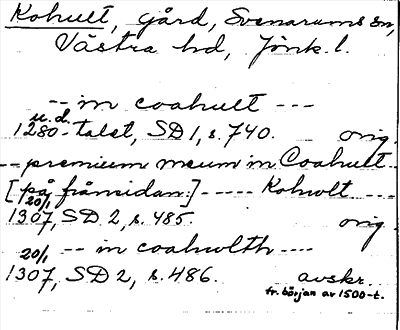 Kohult, gård, Svenarums sn,
Västra hd, Jönk. l.
-- in coahult ---
u.d.
1280-talet, SD 1, s. 740. orig.
-- premium meum in Coahult --
[på frånsidan:] ----- Kohwlt ---
20/1
1307, SD 2, s. 485. orig.
20/1 -- in coahwlth ----
1307, SD 2, s. 486. avskr.
fr. början av 1500-t.